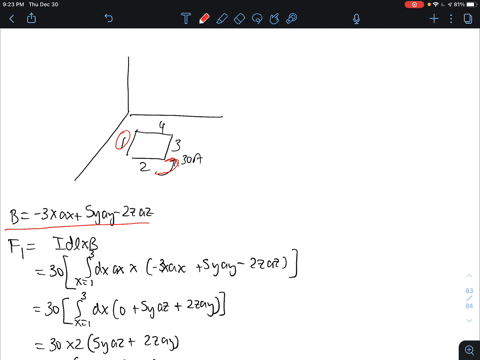 9:23 PM Thu Dec 30
81%
4
1
3
2
30A
B = -3xax + 5yay - 2zaz
F1 = Idl x B
= 30[∫ 3 x=1 dx ax x (-3xax + 5yay - 2zaz)]
= 30[∫ 3 x=1 dx (0 + 5yaz + 2zay)]
= 30 x 2 (5yaz + 2zay)
83
/
84